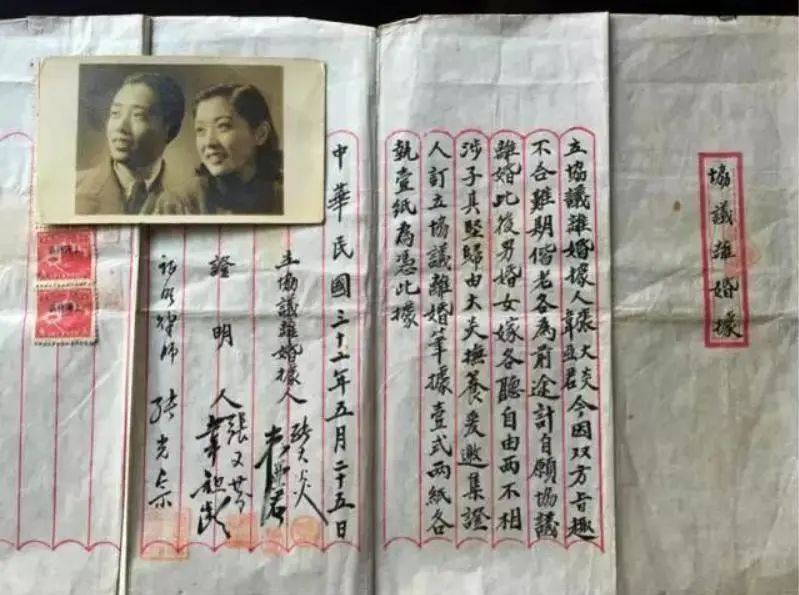 協議離婚據
立協議離婚據人張大炎韋亞君今因双方旨趣
不合難期偕老各為前途計自願協議
離婚此後男婚女嫁各聽自由兩不相
涉子其堅歸由大炎撫養爰邀集證
人訂立協議離婚筆據壹式兩紙各
執壹紙為憑此據
中華民國三十二年五月二十五日
立協議離婚據人 張大炎
韋亞君
證明人 張文
韋
証明律師